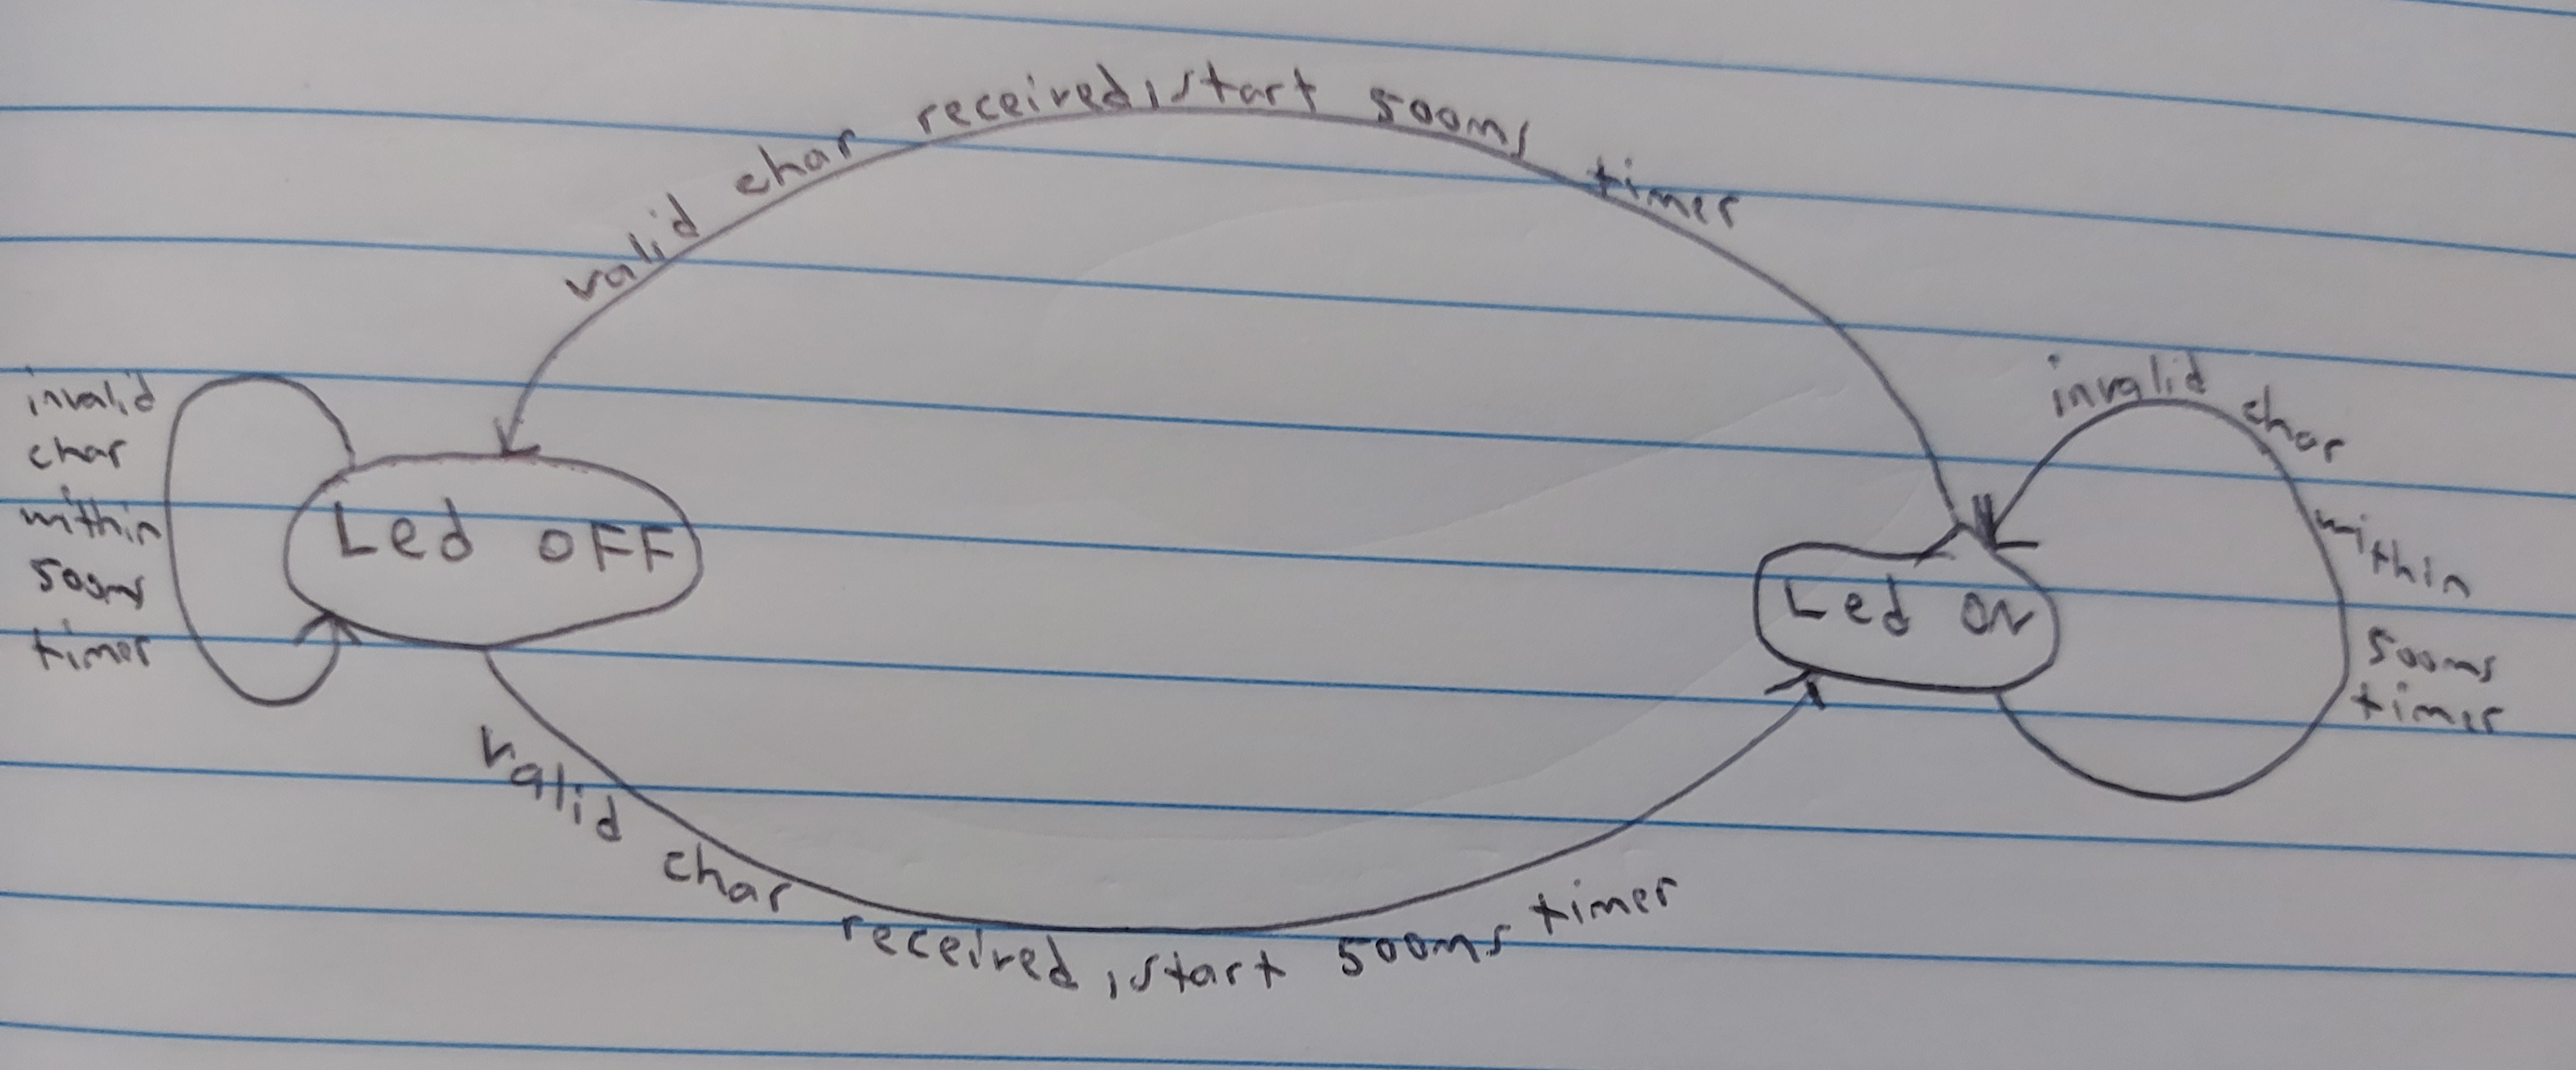 valid char received, start 500ms timer
invalid
char
within
500ms
timer
Led OFF
invalid char
within
500ms
timer
Led ON
valid char received, start 500ms timer